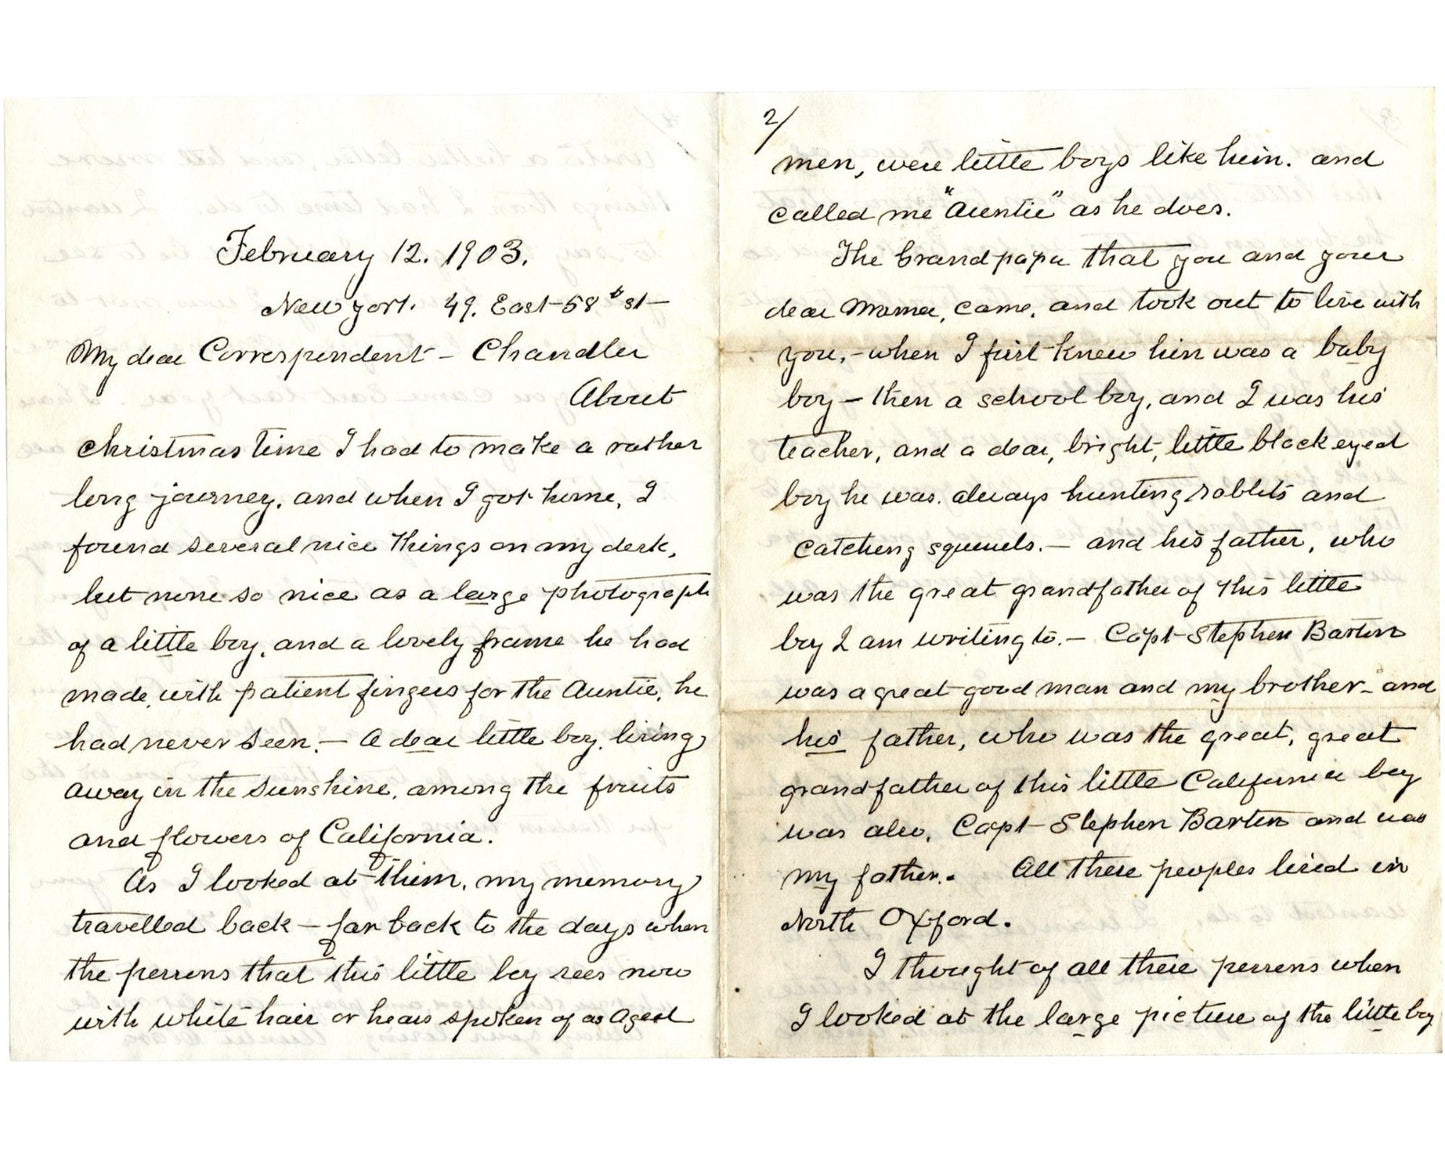 February 12. 1903.
New York. 49. East 58th st
My dear Correspondent - Chandler
About
christmas time I had to make a rather
long journey, and when I got home, I
found several nice things on my desk,
but none so nice as a large photograph
of a little boy, and a lovely frame he had
made, with patient fingers for the Auntie, he
had never seen. - A dear little boy, living
away in the sunshine, among the fruits
and flowers of California.
As I looked at them, my memory
travelled back - far back to the days when
the persons that this little boy sees now
with white hair or hears spoken of as aged
2/
men, were little boys like him. and
called me "Auntie" as he does.
The Grandpapa that you and your
dear Mama, came, and took out to live with
you, - when I first knew him was a baby
boy - then a school boy, and I was his
teacher, and a dear, bright, little black eyed
boy he was. always hunting rabbits and
catching squirrels. - and his father, who
was the great grandfather of this little
boy I am writing to. - Capt Stephen Barton
was a great good man and my brother - and
his father, who was the great, great
grandfather of this little California boy
was also, Capt Stephen Barton and was
my father. All these peoples lived in
North Oxford.
I thought of all these persons when
I looked at the large picture of the little boy